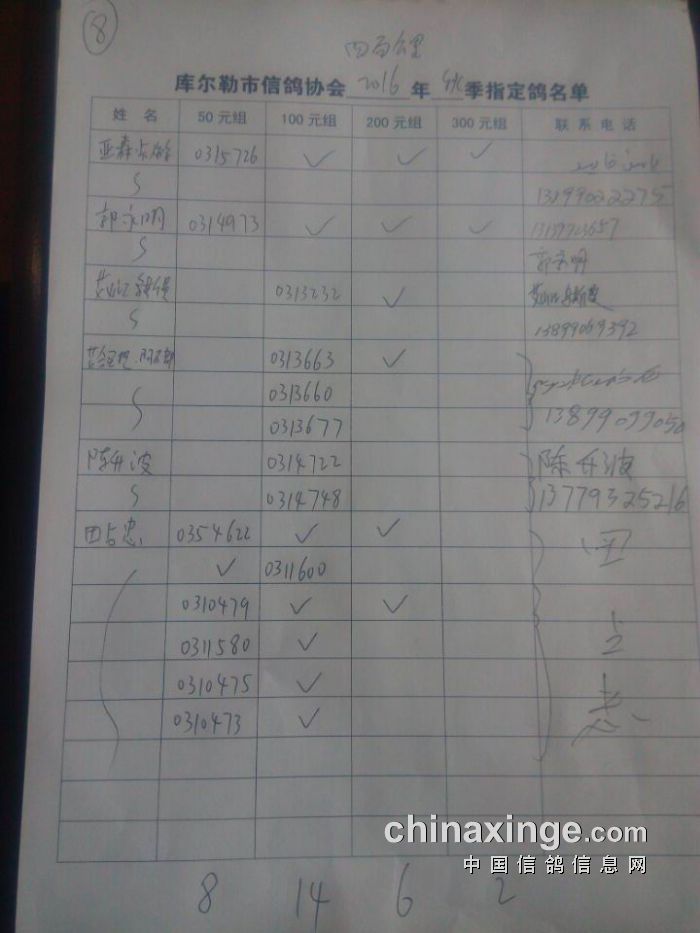 8
四百公里
库尔勒市信鸽协会 2016 年 秋 季指定鸽名单
姓 名 50元组 100元组 200元组 300元组 联系电话
0315726 ✓ ✓ ✓
13199022275
郭永明 0314973 ✓ ✓ ✓
郭永明
0313232 ✓
13899069392
0313663 ✓
0313660
0313677 13899099050
陈升波 0314722 陈升波
0314748 13779325216
田占忠 0354622 ✓ ✓ 田
✓ 0311600
0310479 ✓ ✓
0311580 ✓ 占
0310475 ✓
0310473 ✓ 忠
chinaxinge.com
中国信鸽信息网
8 14 6 2